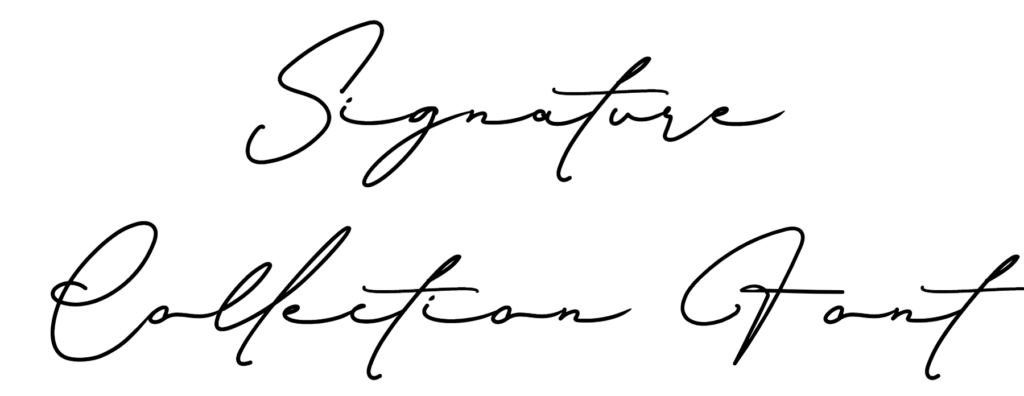 Signature
Collection Font